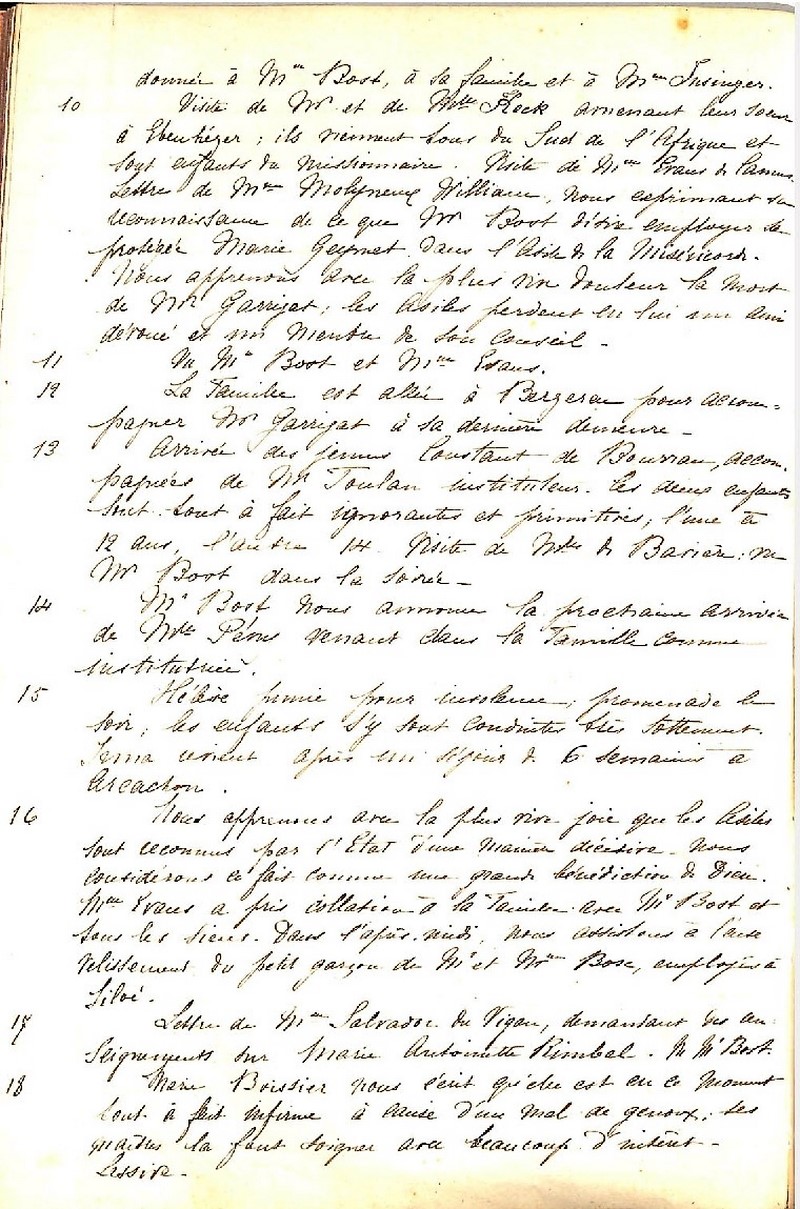 donnée à Mr Bost, à sa famille et à Mme Insinger.
10 Visite de Mr et de Melle Keck amenant leur soeur
à Ebenhézer ; ils viennent tous du Sud de l'Afrique et
sont enfants du missionnaire. Visite de Mme Evans de
Lettre de Mme Molyneux William, nous exprimant sa
reconnaissance de ce que Mr Bost désire employer sa
protégée Marie Geynet dans l'Asile de la Miséricorde.
Nous apprenons avec la plus vive douleur la mort
de Mr Garrigat ; les Asiles perdent en lui un ami
dévoué et un membre de son Conseil -
11 Vu Mr Bost et Mme Evans.
12 La Famille est allée à Bergerac pour accom=
pagner Mr Garrigat à sa dernière demeure -
13 Arrivée des jeunes Constant de accom-
pagnées de Mr Toulan instituteur. Les deux enfants
sont tout à fait ignorantes et primitives, l'une a
12 ans, l'autre 14. Visite de de ; vu
Mr Bost dans la soirée -
14 Mr Bost nous annonce la prochaine arrivée
de Melle venant dans la Famille comme
institutrice.
15 punie pour insolence ; promenade le
soir, les enfants s'y sont conduites très sottement.
Irma revient après un séjour de 6 semaines à
Arcachon.
16 Nous apprenons avec la plus vive joie que les Asiles
sont reconnus par l'Etat d'une manière décisive. Nous
considérons ce fait comme une grande bénédiction de Dieu.
Mme Evans a pris collation à la Famille avec Mr Bost et
tous les siens. Dans l'après-midi, nous assistons à l'ense
velissement du petit garçon de Mr et Mme Bosc, employés à
Siloé.
17 Lettre de Mme Salvador du Vigan, demandant des
seignements sur Marie Antoinette Rimbal. Vu Mr Bost
18 Marie Boissier nous écrit qu'elle est en ce moment
tout à fait infirme à cause d'un mal de genoux ; ses
maîtres la font soigner avec beaucoup d'intérêt -
Lessive -